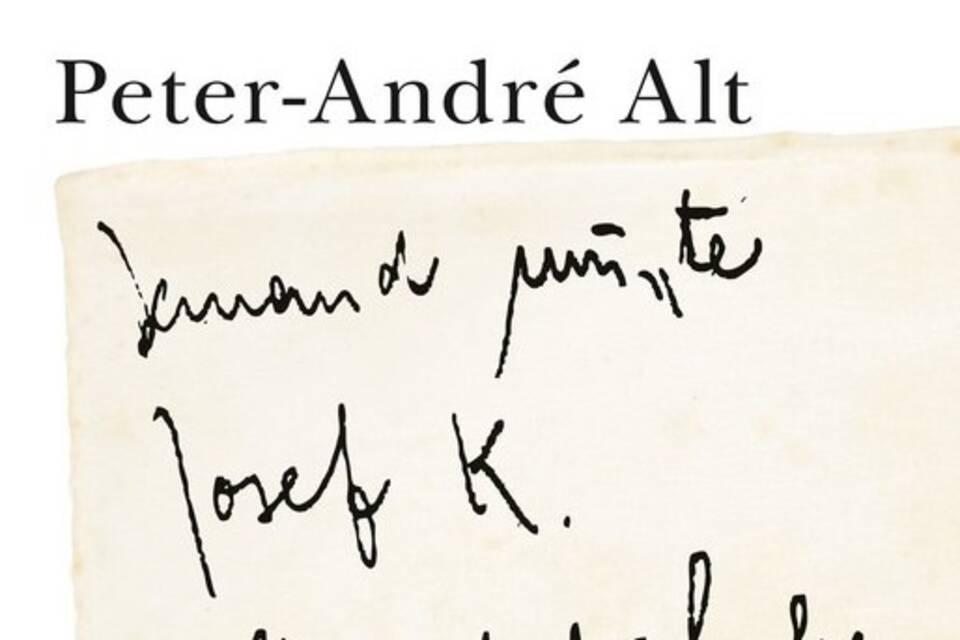 Peter-André Alt
Jemand musste
Josef K.